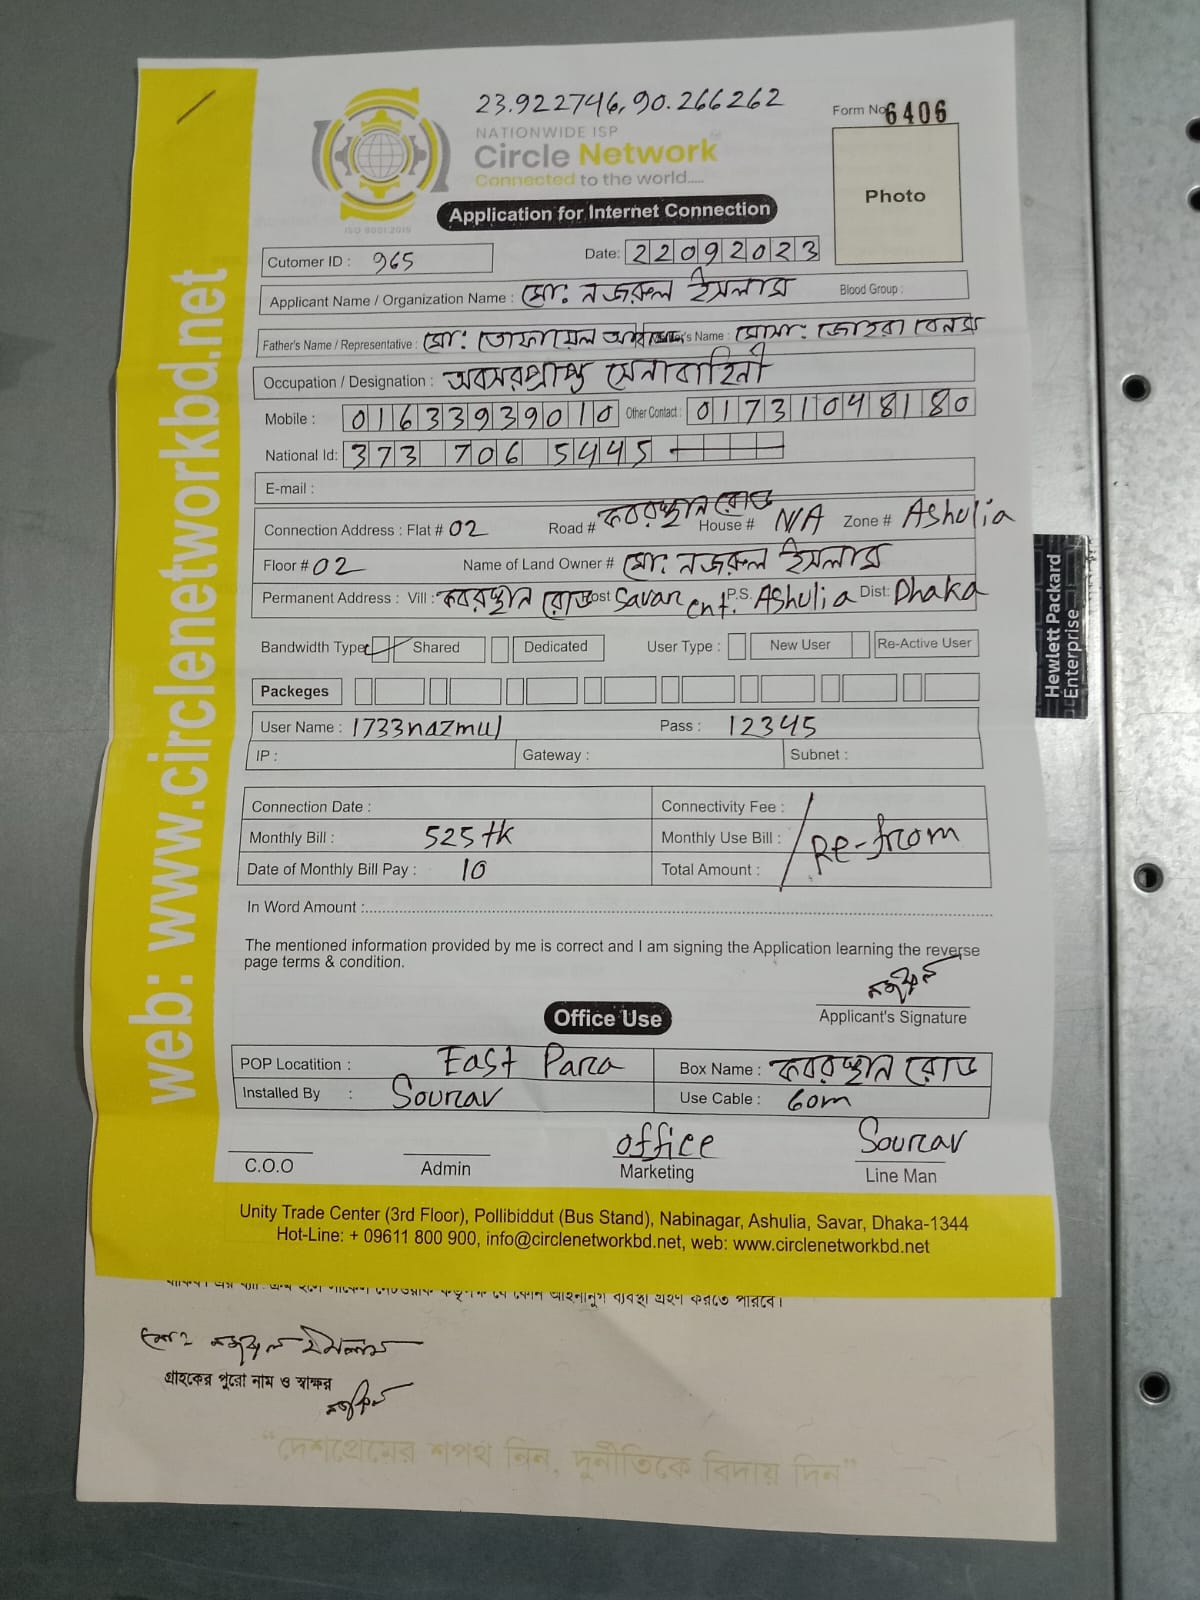 23.922746, 90.266262
Form No 6406
NATIONWIDE ISP
Circle Network
Connected to the world.....
ISO 9001:2015
Photo
Application for Internet Connection
Cutomer ID : 965
Date: 22092023
Applicant Name / Organization Name : মো: নজরুল ইসলাম Blood Group :
Father's Name / Representative : মো: তোফায়েল 's Name : মোসা: জোহরা বেগম
Occupation / Designation : অবসরপ্রাপ্ত সেনাবাহিনী
Mobile : 01633939010 Other Contact : 01731048180
National Id: 373 706 5445
E-mail :
Connection Address : Flat # 02 Road # কবরস্থান রোড House # N/A Zone # Ashulia
Floor # 02 Name of Land Owner # মো: নজরুল ইসলাম
Permanent Address : Vill : কবরস্থান রোড ost Savar cnt. P.S. Ashulia Dist: Dhaka
Bandwidth Type Shared Dedicated User Type : New User Re-Active User
Packeges
User Name : 1733nazmul Pass : 12345
IP : Gateway : Subnet :
Connection Date : Connectivity Fee :
Monthly Bill : 525 tk Monthly Use Bill : Re-from
Date of Monthly Bill Pay : 10 Total Amount :
In Word Amount :
The mentioned information provided by me is correct and I am signing the Application learning the reverse
page terms & condition.
নজরুল
Applicant's Signature
Office Use
POP Locatition : East Para Box Name : কবরস্থান রোড
Installed By : Sourav Use Cable : 60m
office Sourav
C.O.O Admin Marketing Line Man
Unity Trade Center (3rd Floor), Pollibiddut (Bus Stand), Nabinagar, Ashulia, Savar, Dhaka-1344
Hot-Line: + 09611 800 900, info@circlenetworkbd.net, web: www.circlenetworkbd.net
web: www.circlenetworkbd.net
যে কোন আইনানুগ ব্যবস্থা গ্রহণ করতে পারবে।
মো: নজরুল ইসলাম
গ্রাহকের পুরো নাম ও স্বাক্ষর
নজরুল
“দেশপ্রেমের শপথ নিন, দুর্নীতিকে বিদায় দিন”
Hewlett Packard
Enterprise